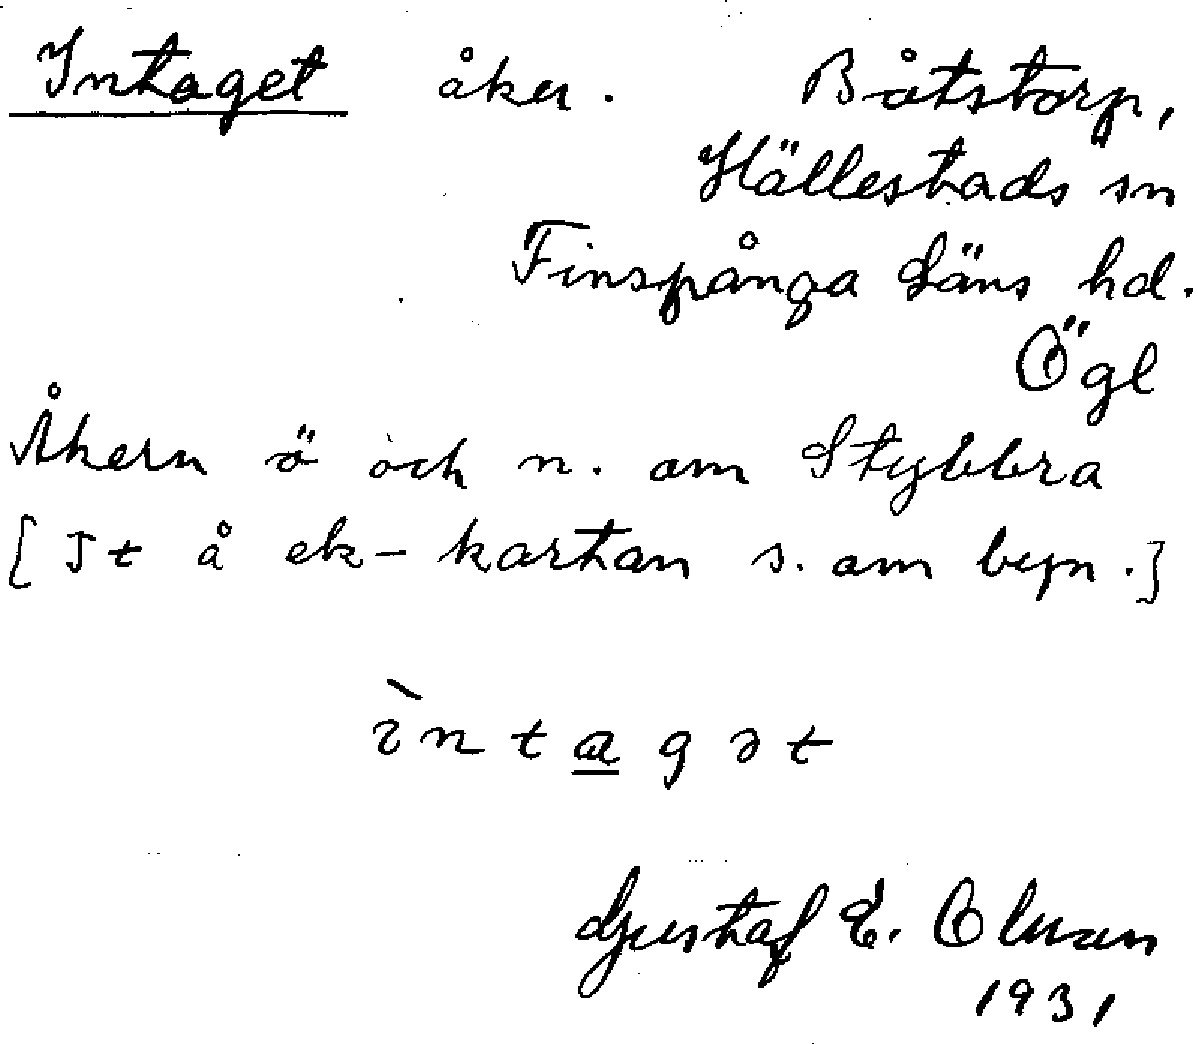 Intaget åker. Båtstorp,
Hällestads sn
Finspånga Läns hd.
Ögl
Åkern ö och n. om Stybbra
[ It å ek-kartan s. om byn.]
ìntagət
Gustaf E.
1931